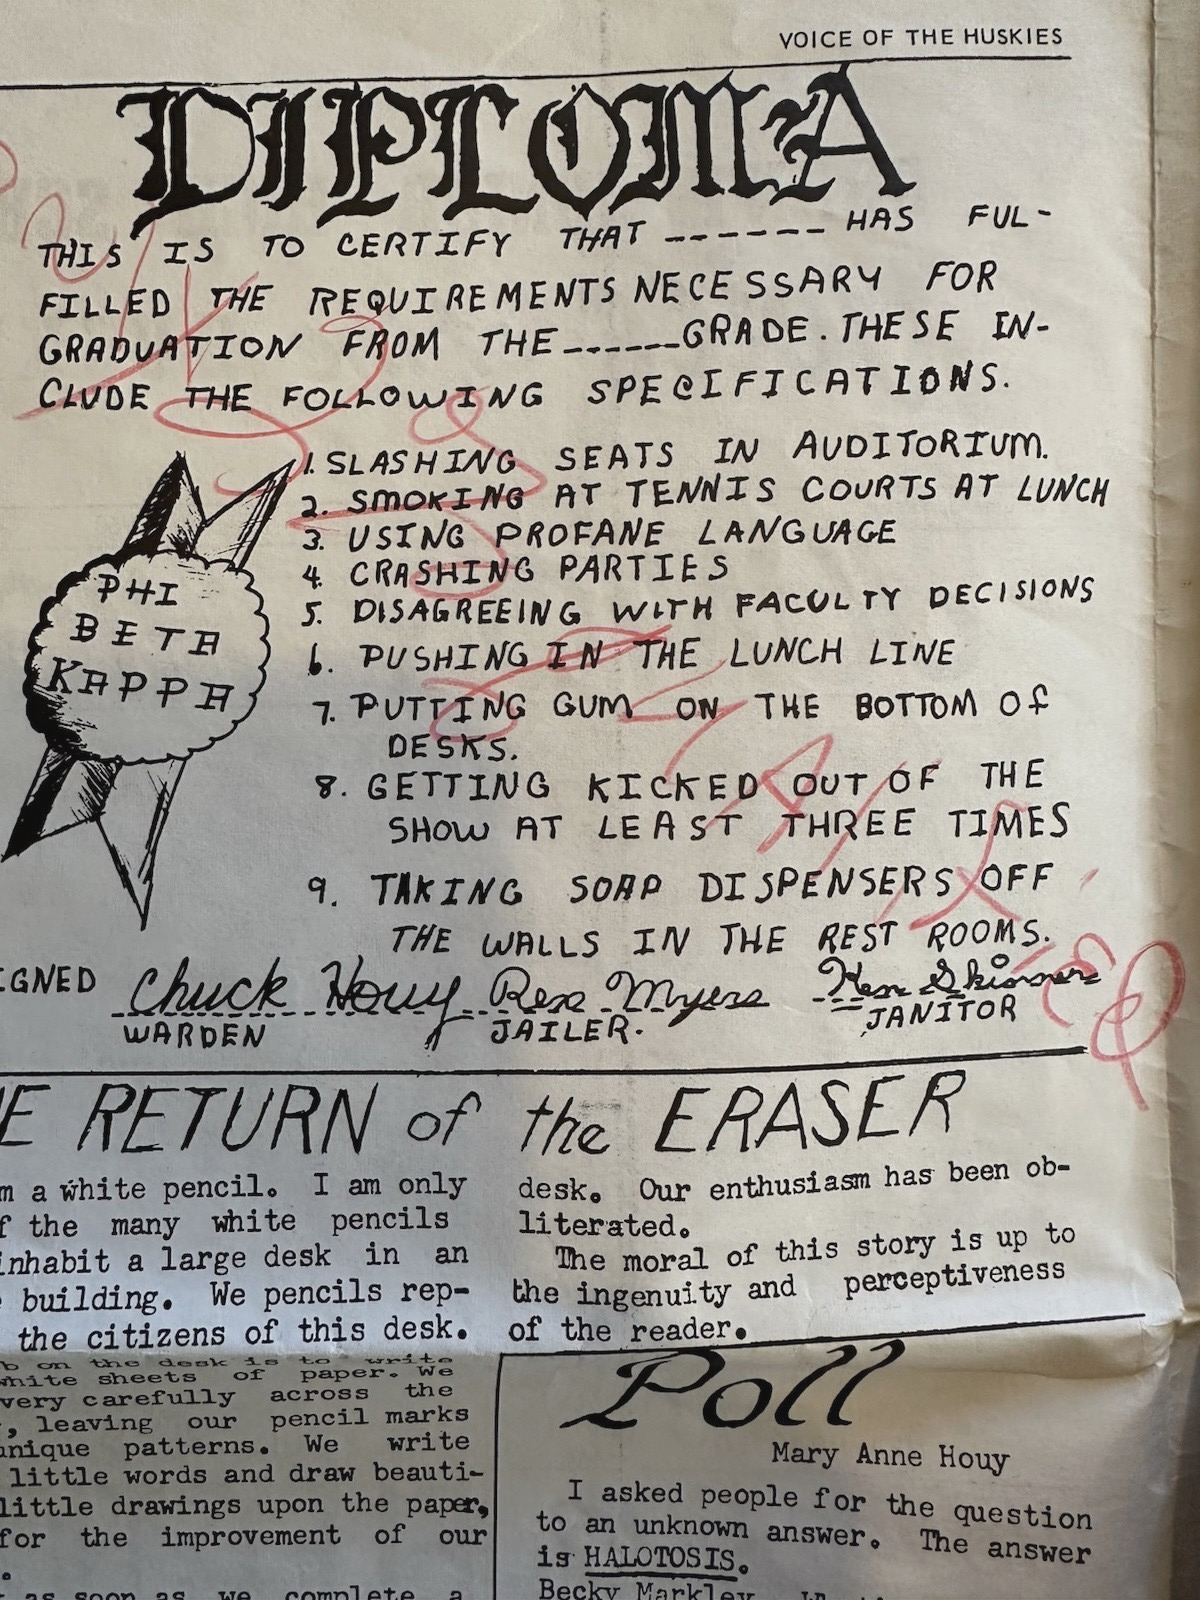 VOICE OF THE HUSKIES
DIPLOMA
THIS IS TO CERTIFY THAT ------ HAS FUL-
FILLED THE REQUIREMENTS NECESSARY FOR
GRADUATION FROM THE ------ GRADE. THESE IN-
CLUDE THE FOLLOWING SPECIFICATIONS.
PHI
BETA
KAPPA
1. SLASHING SEATS IN AUDITORIUM.
2. SMOKING AT TENNIS COURTS AT LUNCH
3. USING PROFANE LANGUAGE
4. CRASHING PARTIES
5. DISAGREEING WITH FACULTY DECISIONS
6. PUSHING IN THE LUNCH LINE
7. PUTTING GUM ON THE BOTTOM OF
DESKS.
8. GETTING KICKED OUT OF THE
SHOW AT LEAST THREE TIMES
9. TAKING SOAP DISPENSERS OFF
THE WALLS IN THE REST ROOMS.
IGNED Chuck Houy Rex Myers Ken Skinner
WARDEN JAILER. JANITOR
E RETURN of the ERASER
m a white pencil. I am only
f the many white pencils
inhabit a large desk in an
building. We pencils rep-
the citizens of this desk.
b on the desk is to write
white sheets of paper. We
very carefully across the
, leaving our pencil marks
unique patterns. We write
little words and draw beauti-
little drawings upon the paper,
for the improvement of our
.
as soon as we complete a
desk. Our enthusiasm has been ob-
literated.
The moral of this story is up to
the ingenuity and perceptiveness
of the reader.
Poll
Mary Anne Houy
I asked people for the question
to an unknown answer. The answer
is HALOTOSIS.
Becky Markley